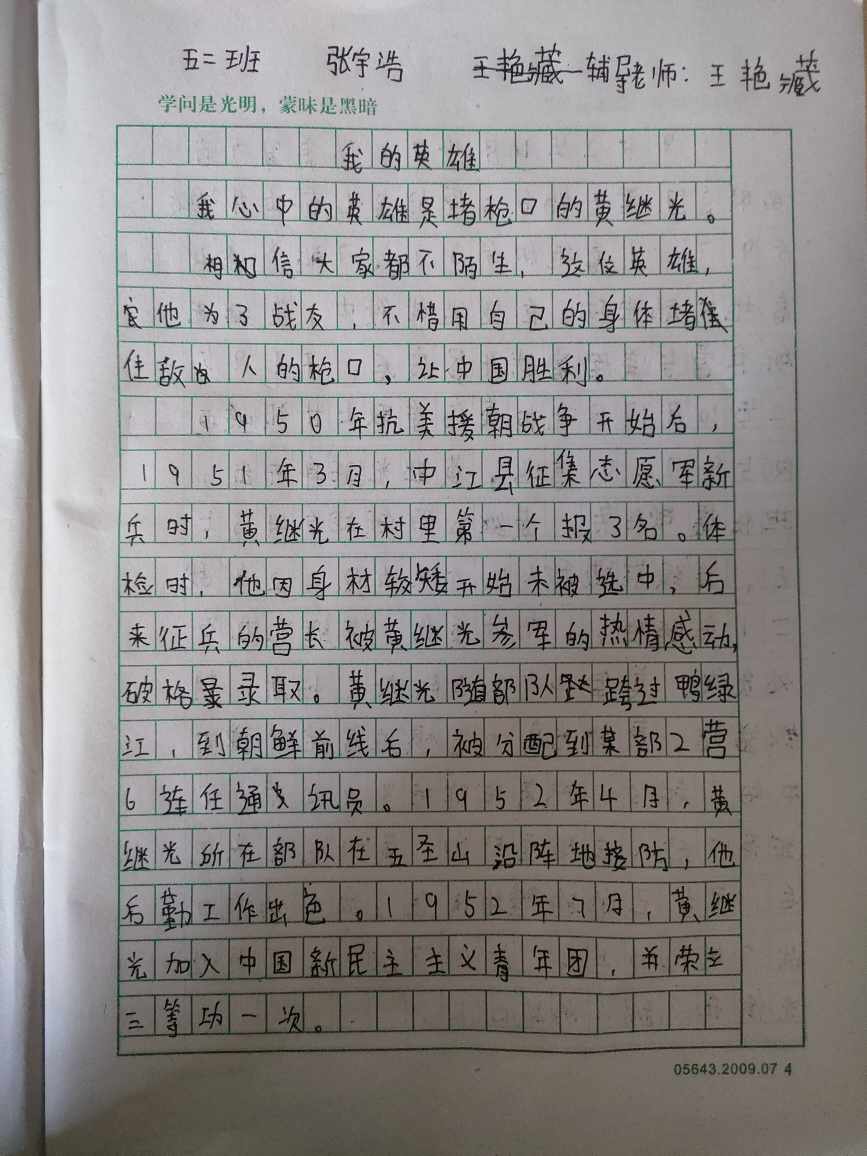 五二班 张宇浩 王艳藏 辅导老师：王艳藏
学问是光明，蒙昧是黑暗
我的英雄
我心中的英雄是堵枪口的黄继光。
相信大家都不陌生，这位英雄，
他为了战友，不惜用自己的身体堵
住敌人的枪口，让中国胜利。
1950年抗美援朝战争开始后，
1951年3月，中江县征集志愿军新
兵时，黄继光在村里第一个报了名。体
检时，他因身材较矮开始未被选中，后
来征兵的营长被黄继光参军的热情感动，
破格录取。黄继光随部队跨过鸭绿
江，到朝鲜前线后，被分配到某部2营
6连任通讯员。1952年4月，黄
继光所在部队在五圣山沿阵地接防，他
后勤工作出色。1952年7月，黄继
光加入中国新民主主义青年团，并荣立
三等功一次。
05643.2009.07 4